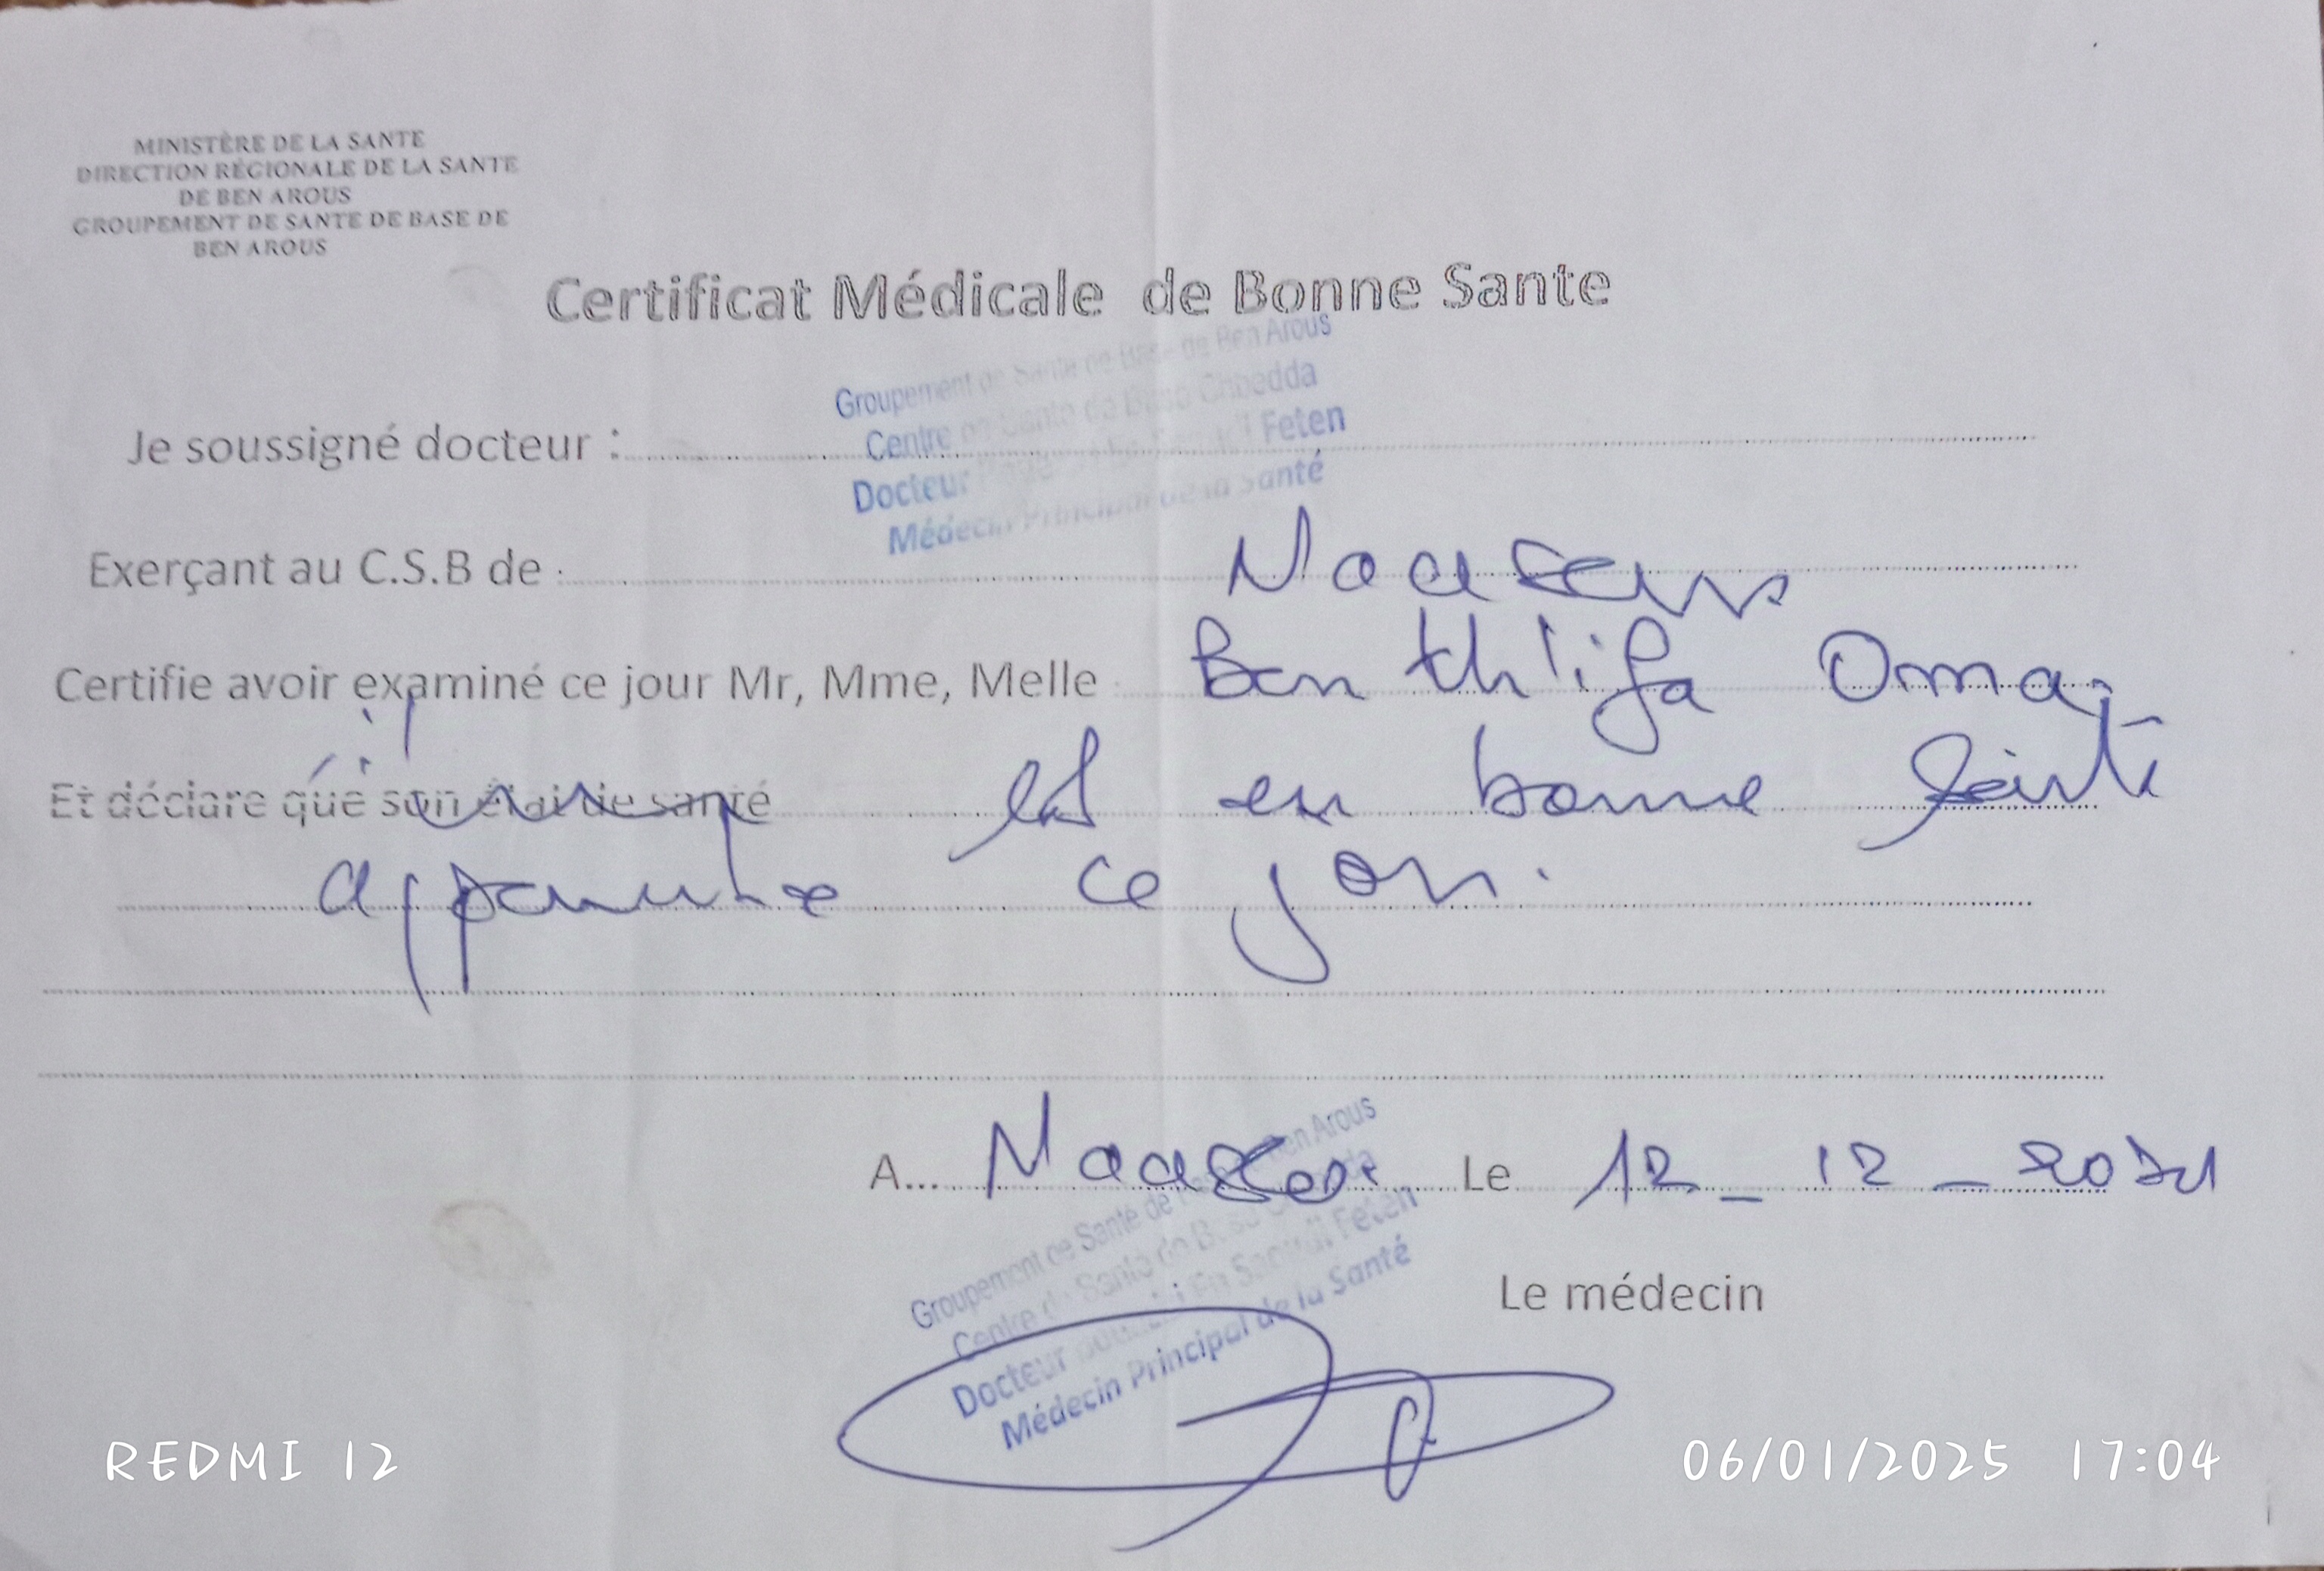 MINISTÈRE DE LA SANTE
DIRECTION RÉGIONALE DE LA SANTE
DE BEN AROUS
GROUPEMENT DE SANTE DE BASE DE
BEN AROUS
Certificat Médicale de Bonne Sante
Groupement de Santé de Base de Ben Arous
Centre de Santé de Base Chbedda
Je soussigné docteur :
Docteur Feten
Médecin Principal de la Santé
Exerçant au C.S.B de :
Certifie avoir examiné ce jour Mr, Mme, Melle Ben Omar
Et déclare que son état de santé est en bonne santé
apparente ce jour.
A... Le 12_12_2024
Groupement de Santé de Ben Arous
Centre de Santé de Base
Docteur Feten
Médecin Principal de la Santé
Le médecin
REDMI 12
06/01/2025 17:04